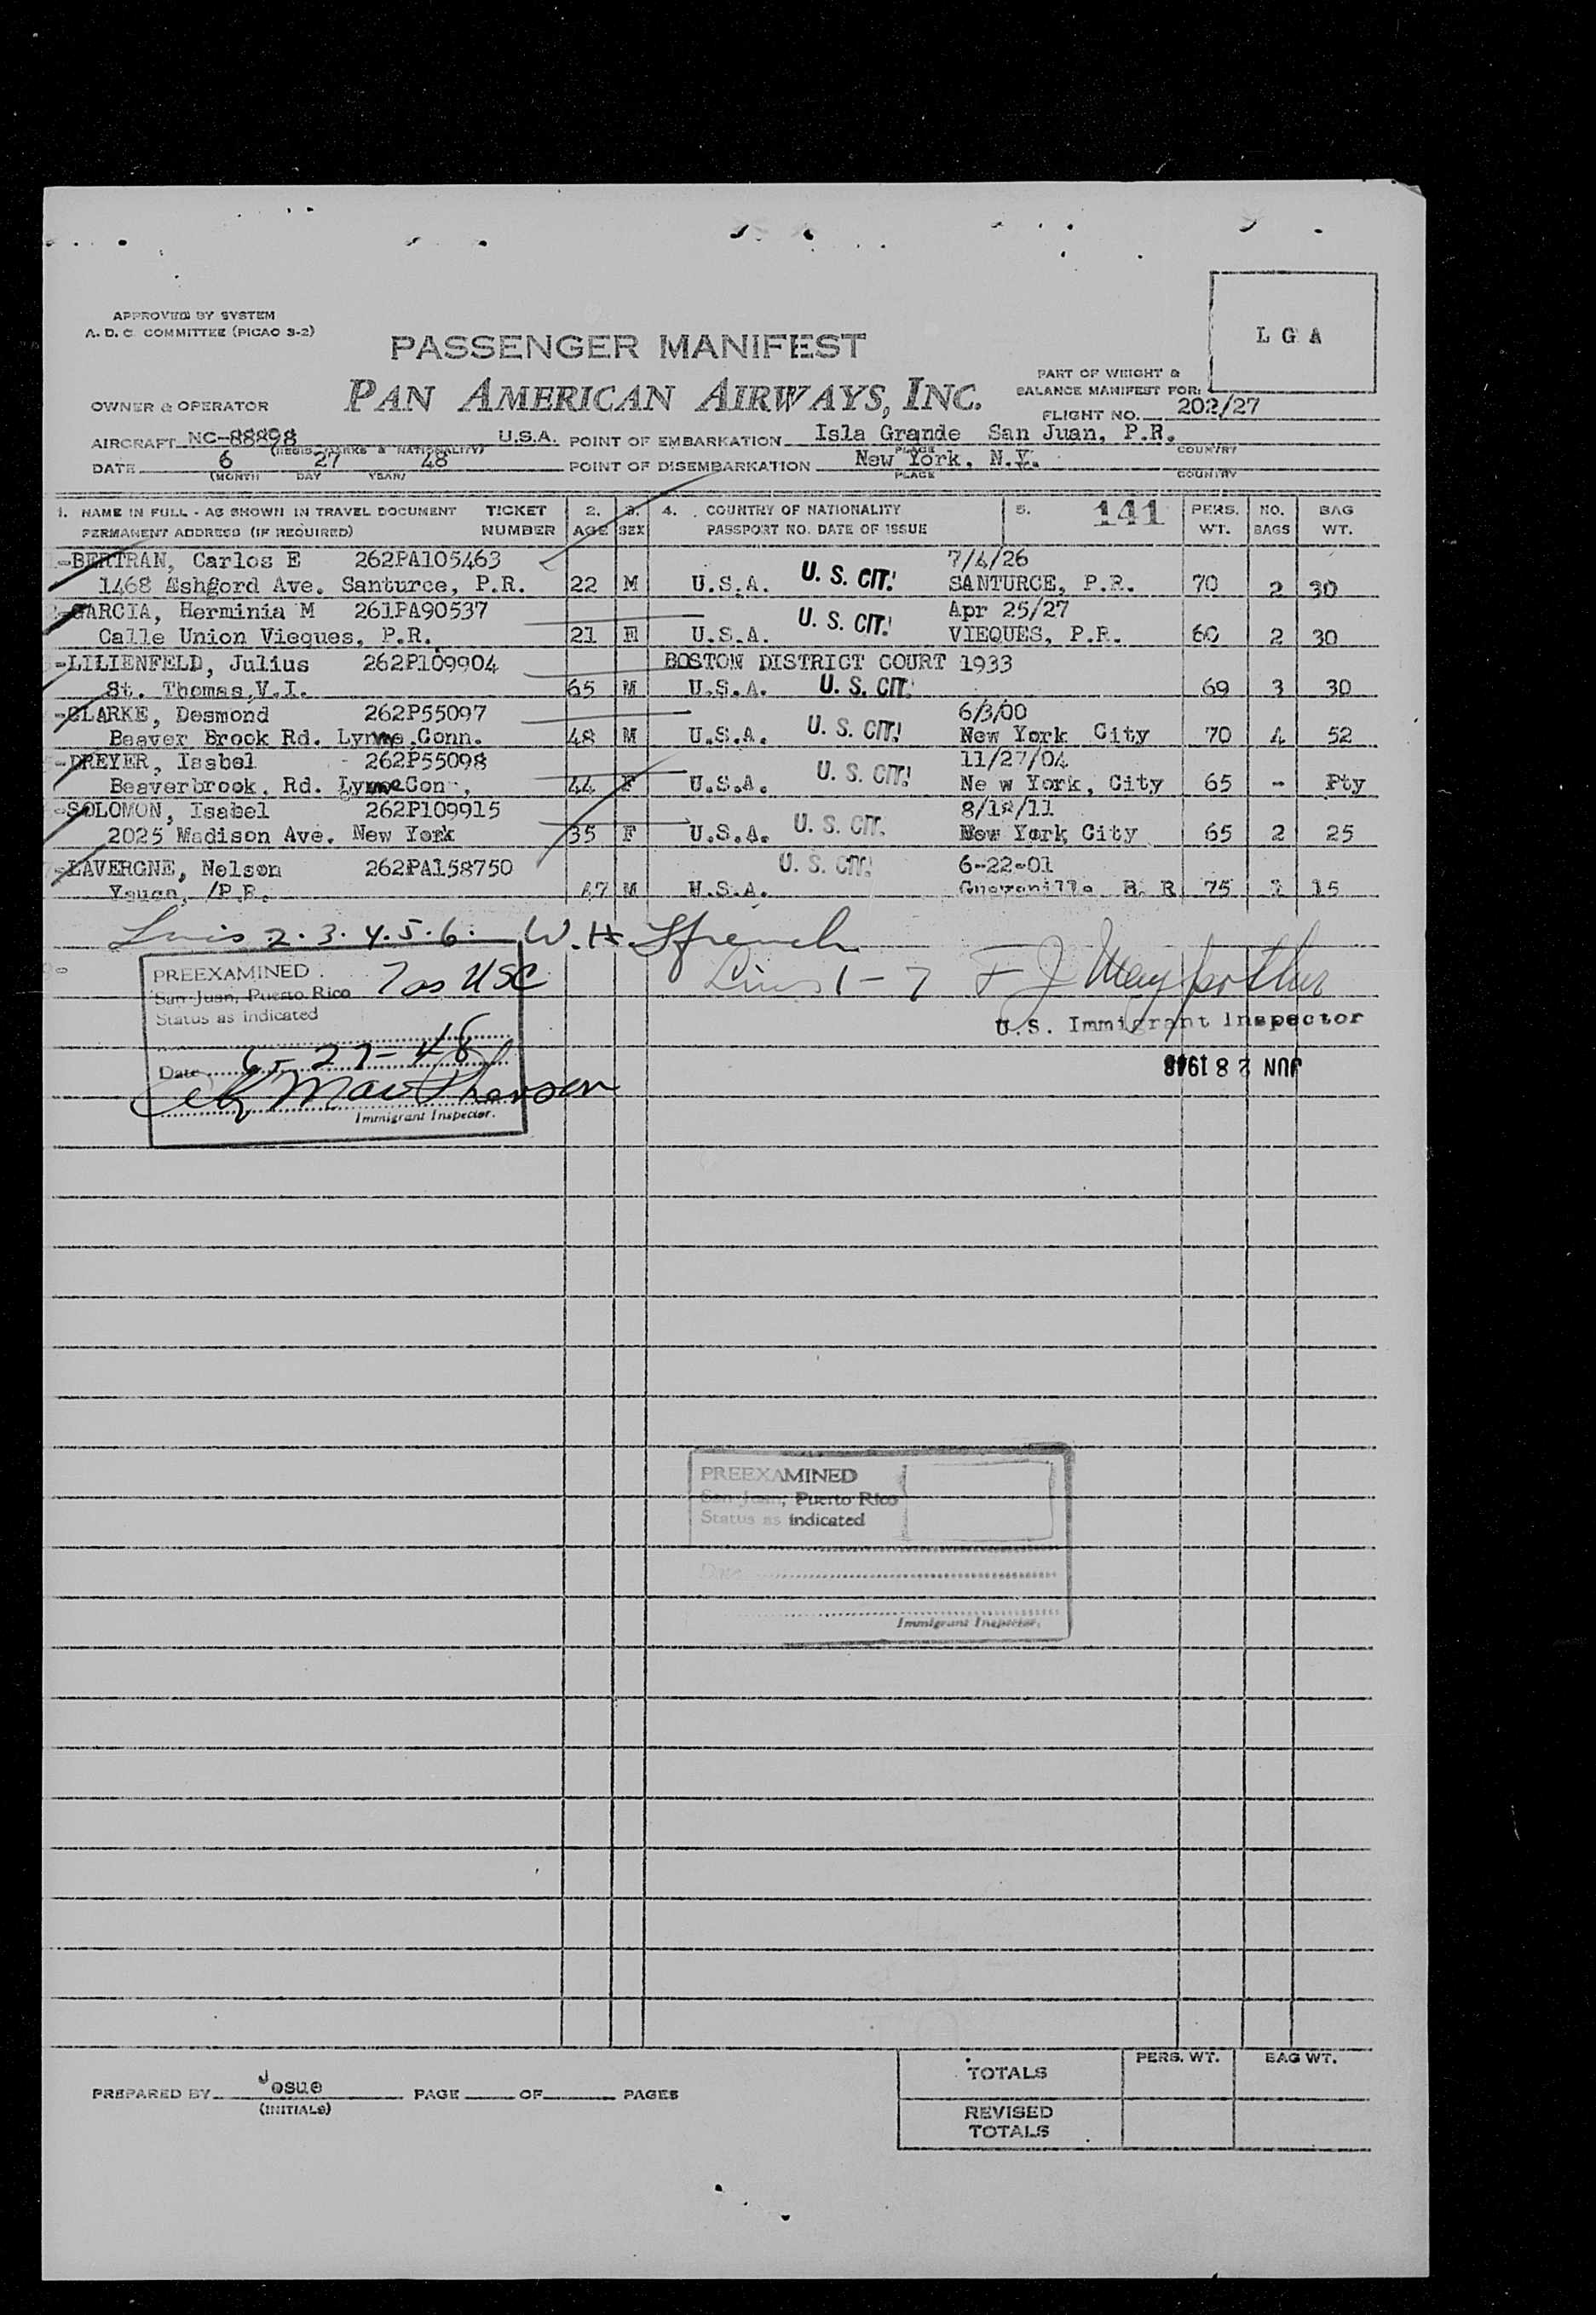 APPROVED BY SYSTEM
A. D. C. COMMITTEE (PICAO S-2)
L G A
PASSENGER MANIFEST
PAN AMERICAN AIRWAYS, INC.
PART OF WEIGHT &
BALANCE MANIFEST FOR:
OWNER & OPERATOR
FLIGHT NO. 202/27
AIRCRAFT NC-88898 U.S.A. POINT OF EMBARKATION Isla Grande San Juan, P.R.
(REGIS. MARKS & NATIONALITY) PLACE COUNTRY
DATE 6 27 48 POINT OF DISEMBARKATION New York, N.Y.
(MONTH DAY YEAR) PLACE COUNTRY
1. NAME IN FULL - AS SHOWN IN TRAVEL DOCUMENT TICKET 2. 3. 4. COUNTRY OF NATIONALITY 5. 141 PERS. NO. BAG
PERMANENT ADDRESS (IF REQUIRED) NUMBER AGE SEX PASSPORT NO. DATE OF ISSUE WT. BAGS WT.
-BERTRAN, Carlos E 262PA105463 7/4/26
1468 Ashgord Ave. Santurce, P.R. 22 M U.S.A. U. S. CIT. SANTURCE, P.R. 70 2 30
-GARCIA, Herminia M 261PA90537 Apr 25/27
Calle Union Vieques, P.R. 21 U.S.A. U. S. CIT. VIEQUES, P.R. 60 2 30
-LILIENFELD, Julius 262P109904 BOSTON DISTRICT COURT 1933
St. Thomas,V.I. 65 M U.S.A. U. S. CIT. 69 3 30
-CLARKE, Desmond 262P55097 6/3/00
Beaver Brook Rd. Lyme Conn. 48 M U.S.A. U. S. CIT. New York City 70 4 52
-DREYER, Isabel - 262P55098 11/27/04
Beaverbrook, Rd. Lyme Con , 44 F U.S.A. U. S. CIT. Ne w York, City 65 - Pty
-SOLOMON, Isabel 262P109915
2025 Madison Ave. New York 35 F U.S.A. U. S. CIT. New York City 65 2 25
-LAVERGNE, Nelson 262PA158750 U. S. CIT. 6-22-01
47 M U.S.A. 75 15
2. 3. 4. 5. 6. W. H.
PREEXAMINED 7 as USC
San Juan, Puerto Rico
Status as indicated
Lines 1 - 7 F J
U.S. Immigrant Inspector
Date 6-27-48
JUN 28 1948
Immigrant Inspector.
PREEXAMINED
San Juan, Puerto Rico
Status as indicated
Date
Immigrant Inspector.
PREPARED BY Josue PAGE OF PAGES
(INITIALS)
TOTALS PERS. WT. BAG WT.
REVISED
TOTALS